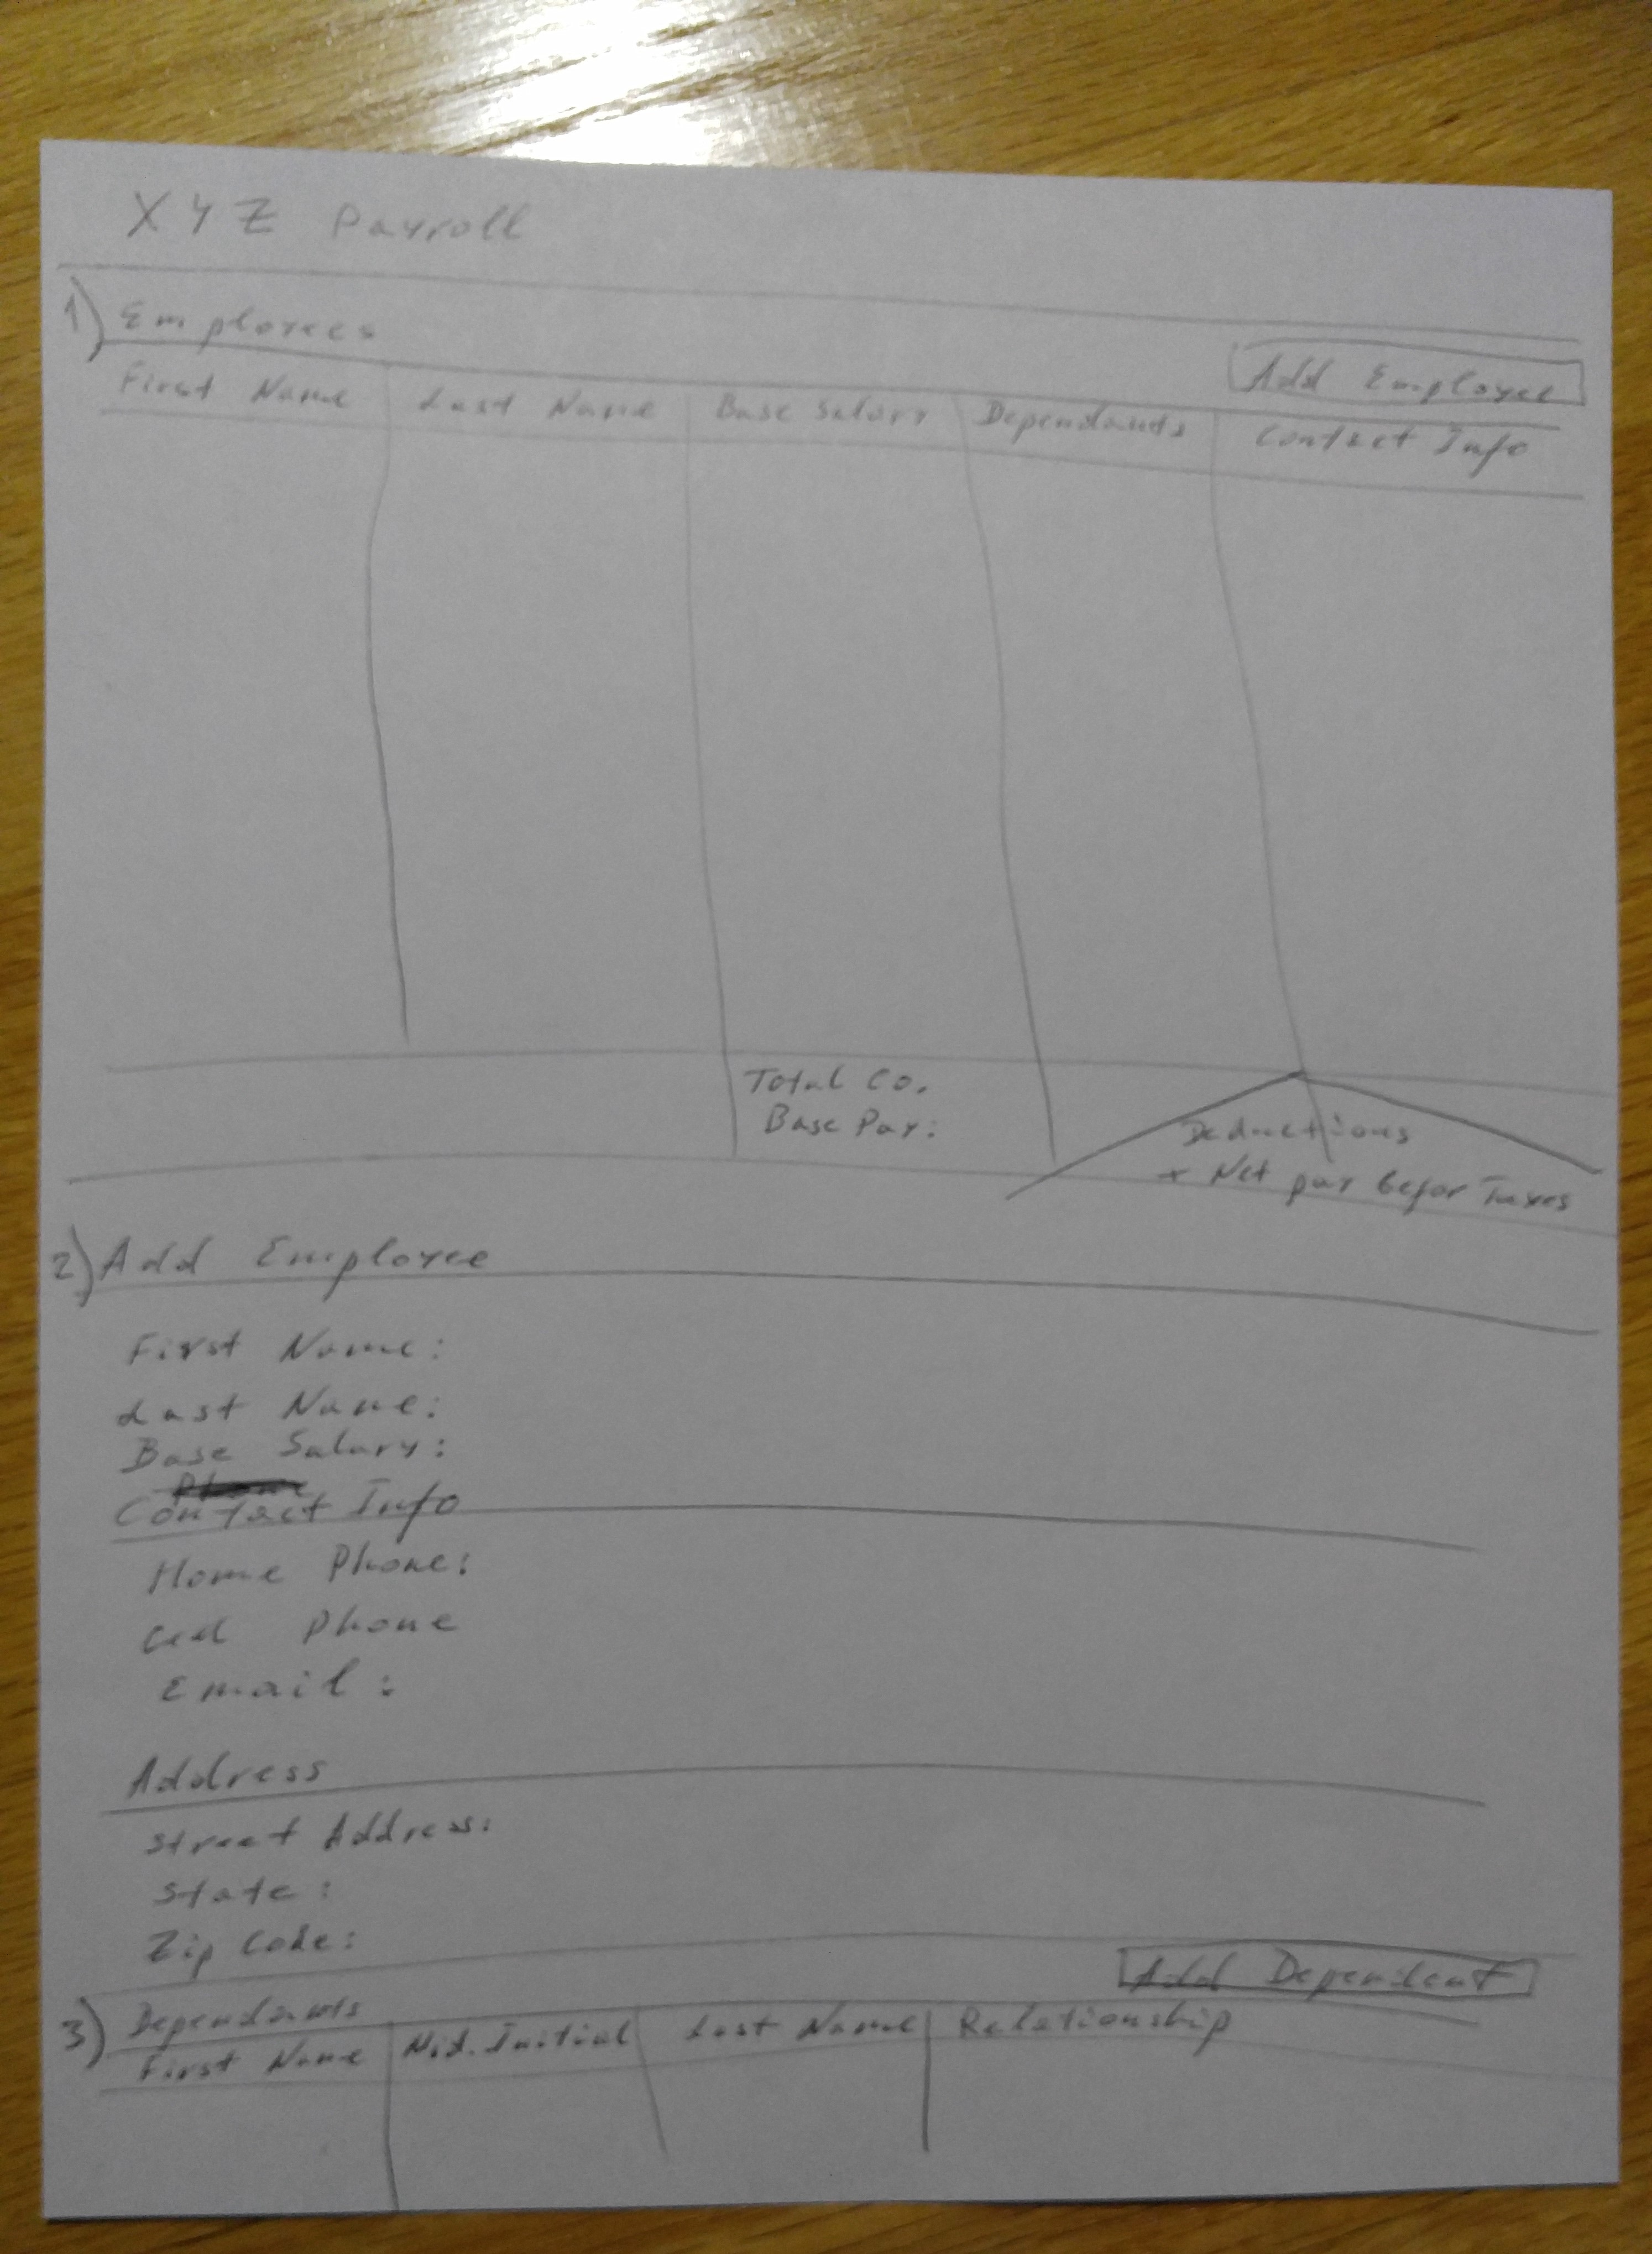 XYZ Payroll
1) Employees
Add Employee
First Name Last Name Base Salary Dependants Contact Info
Total Co.
Base Pay:
Deductions
+ Net pay befor Taxes
2) Add Employee
First Name:
Last Name:
Base Salary:
Phone
Contact Info
Home Phone:
Cell Phone
Email:
Address
Street Address:
State:
Zip Code:
Add Dependent
3) Dependants
First Name Mid. Initial Last Name Relationship